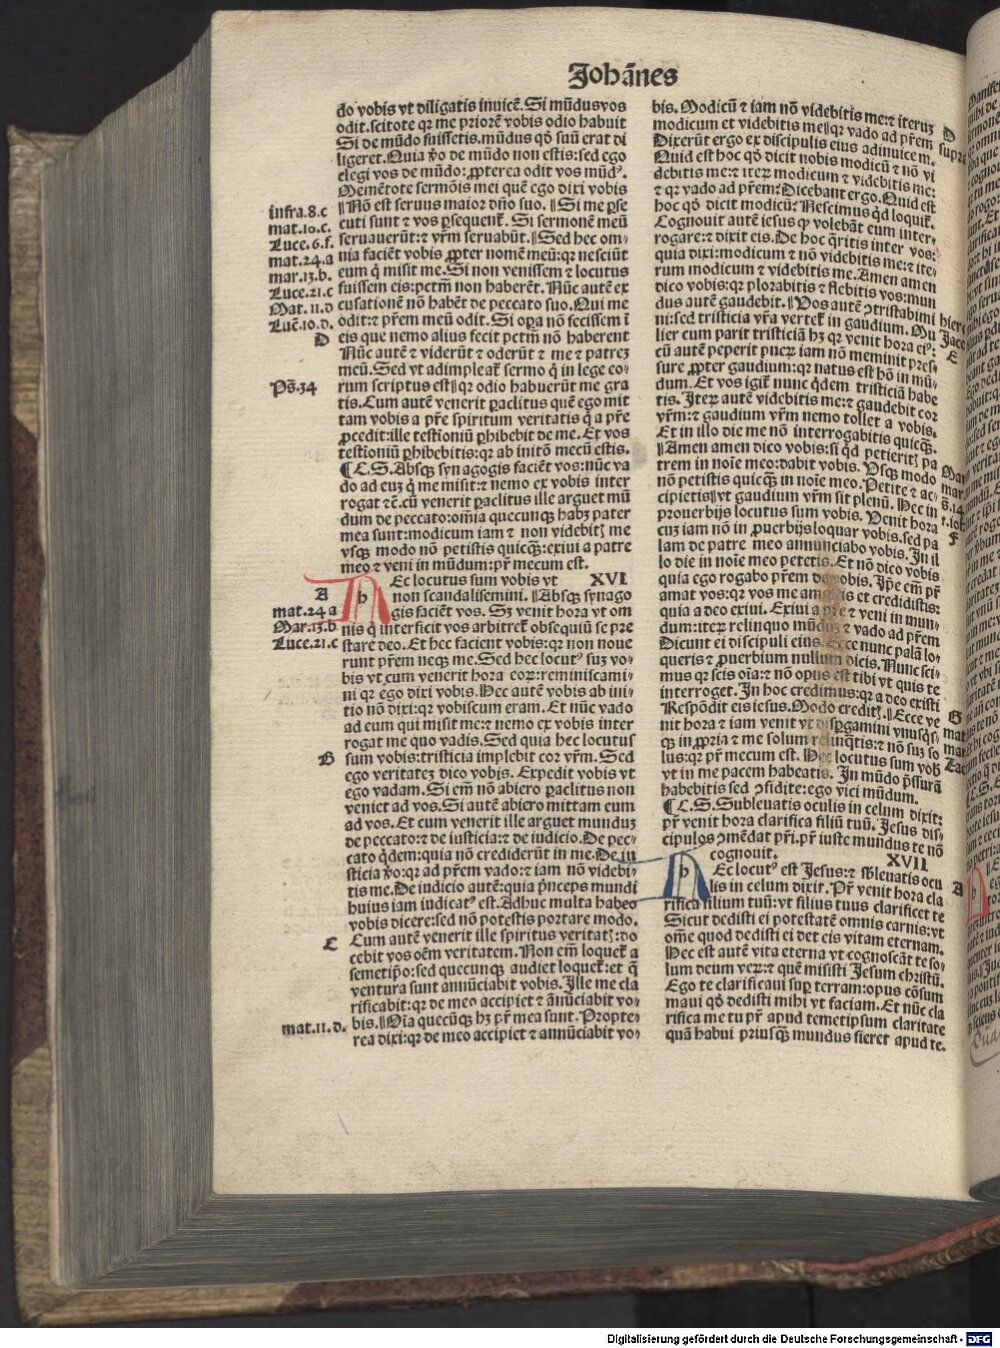 Johānes
do vobis vt diligatis inuicē. Si mūdus vos
odit. scitote qꝛ me priorē vobis odio habuit
Si de mūdo fuissetis. mūdus qđ suū erat di
ligeret. Quia ṽo de mūdo non estis: sed ego
elegi vos de mūdo: ꝓpterea odit vos mūdꝰ.
Memētote sermōis mei quē ego dixi vobis
infra.8.c
Nō est seruus maior dño suo. Si me ꝑse
mat.10.c.
cuti sunt & vos ꝑsequenť. Si sermonē meū
Luce.6.f.
seruauerūt: & vr̄m seruabūt. Sed hec om⸗
mat.24.a
nia faciēt vobis ꝓpter nomē meū: qꝛ nesciūt
mar.13.b.
eum q̄ misit me. Si non venissem & locutus
Luce.21.c
fuissem eis: pctm̄ non haberēt. Nūc autē ex
Mat.11.d
cusationē nō habēt de peccato suo. Qui me
Lucē.10.d.
odit: & pr̄em meū odit. Si oꝑa nō fecissem ī
D
eis que nemo alius fecit pctm̄ nō haberent
Nūc autē & viderūt & oderūt & me & patrez
meū. Sed vt adimpleať sermo q̄ in lege eo⸗
Ps̄.34
rum scriptus est qꝛ odio habuerūt me gra
tis. Cum autē venerit paclitus quē ego mit
tam vobis a pr̄e spiritum veritatis q̄ a pr̄e
ꝓcedit: ille testioniū ꝑhibebit de me. Et vos
testioniū ꝑhibebitis: qꝛ ab initō mecū estis.
¶ C. S. Absqꝫ synagogis faciēt vos: nūc va
do ad euz q̄ me misit: & nemo ex vobis inter
rogat &c̄. cū venerit paclitus ille arguet mū
dum de peccato: om̄ia quecunqꝫ habꝫ pater
mea sunt: modicum iam & non videbitꝭ me
vsqꝫ modo nō petistis quicqꝫ: exiui a patre
meo & veni in mūdum: pr̄ mecum est.
h
Ec locutus sum vobis vt XVI
A
non scandalisemini. Absqꝫ synago
mat.24 a
gis faciēt vos. Sꝫ venit hora vt om
Mar.13.b
nis q̄ interficit vos arbitreť obsequiū se pre
Luce.21.c
stare deo. Et hec facient vobis: qꝛ non noue
runt pr̄em neqꝫ me. Sed hec locutꝰ suꝫ vo⸗
bis vt cum venerit hora eoꝝ: reminiscami⸗
ni qꝛ ego dixi vobis. Hec autē vobis ab ini⸗
tio nō dixi: qꝛ vobiscum eram. Et nūc vado
ad eum qui misit me: & nemo ex vobis inter
rogat me quo vadis. Sed quia hec locutus
B
sum vobis: tristicia implebit cor vr̄m. Sed
ego veritatez dico vobis. Expedit vobis vt
ego vadam. Si em̄ nō abiero paclitus non
veniet ad vos. Si autē abiero mittam eum
ad vos. Et cum venerit ille arguet munduz
de peccato: & de iusticia: & de iudicio. De pec⸗
cato q̄dem: quia nō crediderūt in me. De iu
sticia ṽo: qꝛ ad pr̄em vado: & iam nō videbi⸗
tis me. De iudicio autē: quia p̄nceps mundi
huius iam iudicatꝰ est. Adhuc multa habeo
vobis dicere: sed nō potestis portare modo.
C
Cum autē venerit ille spiritus veritatꝭ: do
cebit vos oēm veritatem. Non em̄ loqueť a
semetip̄o: sed quecunqꝫ audiet loqueť: et q̄
ventura sunt annūciabit vobis. Ille me cla
rificabit: qꝛ de meo accipiet & ānūciabit vo⸗
mat.11.d.
bis. Oīa quecūqꝫ hꝫ pr̄ mea sunt. Propte⸗
rea dixi: qꝛ de meo accipiet & annūciabit vo⸗
bis. Modicū & iam nō videbitis me: & iteruꝫ
D
modicum et videbitis me qꝛ vado ad pr̄em
supra
Dixerūt ergo ex discipulis eius adinuicem.
Quid est hoc qđ dicit nobis modicū & nō vi
debitis me: & iteꝝ modicum & videbitis me:
& qꝛ vado ad pr̄em? Dicebant ergo. Quid est
hoc qđ dicit modicū? Nescimus qd̄ loquiť.
Cognouit autē iesus qꝛ volebāt eum inter⸗
rogare: & dixit eis. De hoc q̄ritis inter vos:
quia dixi: modicum & nō videbitis me: & ite⸗
rum modicum & videbitis me. Amen amen
dico vobis: qꝛ plorabitis & flebitis vos: mun
dus autē gaudebit. Vos autē ꝯtristabimi
hier
ni: sed tristicia vr̄a verteť in gaudium. Mu
Jaco
lier cum parit tristiciā hꝫ qꝛ venit hora eiꝰ:
E
cū autē peperit pueꝝ iam nō meminit pres⸗
sure ꝓpter gaudium: qꝛ natus est hō in mū⸗
dum. Et vos igiť nunc q̄dem tristiciā habe
tis. Iteꝝ autē videbitis me: & gaudebit cor
vr̄m: & gaudium vr̄m nemo tollet a vobis.
Et in illo die me nō interrogabitis quicqꝫ.
Amen amen dico vobis: si qd̄ petieritꝭ pa
trem in noīe meo: dabit vobis. Vsqꝫ modo
nō petistis quicqꝫ in noīe meo. Petite & ac⸗
cipietis vt gaudium vr̄m sit plenū. Hec in
prouerbijs locutus sum vobis. Venit hora
cuꝫ iam nō in ꝓuerbijs loquar vobis. sed pa
F
lam de patre meo annunciabo vobis. In il
lo die in noīe meo petetis. Et nō dico vobis
quia ego rogabo pr̄em de vobis. Ip̄e em̄ pr̄
amat vos: qꝛ vos me amastis et credidistis:
quia a deo exiui. Exiui a pr̄e & veni in mun⸗
dum: iteꝝ relinquo mūduꝫ & vado ad pr̄em
Dicunt ei discipuli eius. Ecce nunc palā lo⸗
queris & ꝓuerbium nullum dicis. Nunc sci⸗
mus qꝛ scis oīa: & nō opus est tibi vt quis te
interroget. In hoc credimus: qꝛ a deo existi
Respōdit eis iesus. Modo creditꝭ. Ecce ve
G
nit hora & iam venit vt dispgamini vnusq̄s⸗
mat
qꝫ in ꝓpria & me solum relinq̄tis: & nō suꝫ so
mar
lus: qꝛ pr̄ mecum est. Hec locutus sum vob̄
Zac
vt in me pacem habeatis. In mūdo p̄ssurā
habebitis sed ꝯfidite: ego vici mūdum.
¶ C. S. Subleuatis oculis in celum dixit:
pr̄ venit hora clarifica filiū tuū. Jesus dis⸗
cipulos ꝯmēdat pr̄i. pr̄ iuste mundus te nō
cognouit. XVII
h
Ec locutꝰ est Jesus: & sbleuatis ocu
A
lis in celum dixit. Pr̄ venit hora cla
rifica filium tuū: vt filius tuus clarificet te
Sicut dedisti ei potestatē omnis carnis: vt
om̄e quod dedisti ei det eis vitam eternam.
Hec est autē vita eterna vt cognoscāt te so⸗
lum deum veꝝ: & quē misisti Jesum christū.
Ego te clarificaui suꝑ terram: opus cōsum
maui qđ dedisti mihi vt faciam. Et nūc cla
rifica me tu pr̄ apud temetipsum claritate
quā habui priusqꝫ mundus fieret apud te.
Digitalisierung gefördert durch die Deutsche Forschungsgemeinschaft - DFG